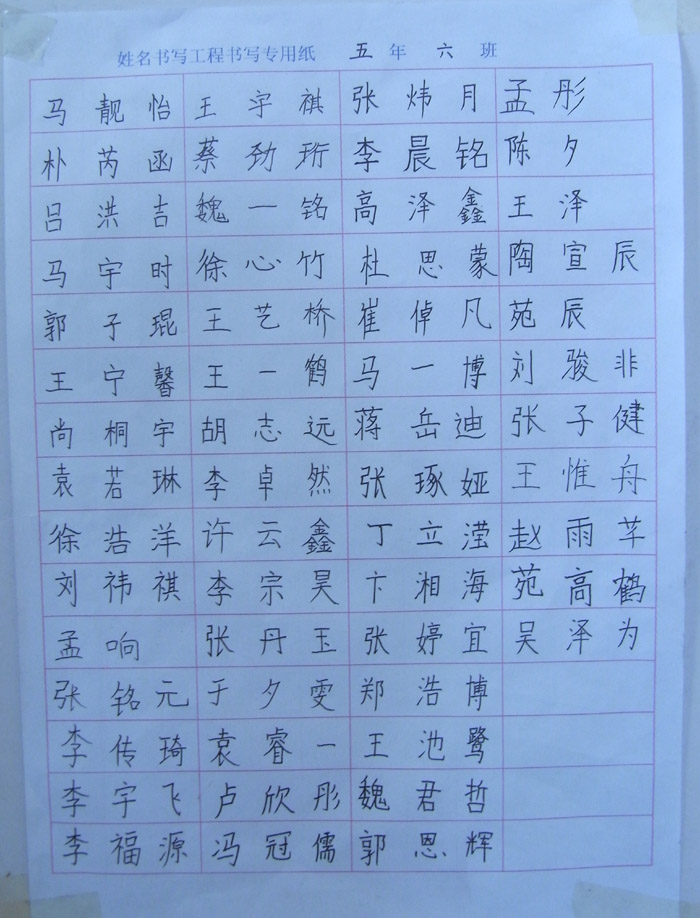 姓名书写工程书写专用纸 五年 六班
马靓怡 王宇祺 张炜月 孟彤
朴芮函 蔡劲珩 李晨铭 陈夕
吕洪吉 魏一铭 高泽鑫 王泽
马宇时 徐心竹 杜思蒙 陶宣辰
郭子琨 王艺桥 崔倬凡 苑辰
王宁馨 王一鹤 马一博 刘骏非
尚桐宇 胡志远 蒋岳迪 张子健
袁若琳 李卓然 张琢娅 王惟舟
徐浩洋 许云鑫 丁立滢 赵雨芊
刘祎祺 李宗昊 卞湘海 苑高鹤
孟响 张丹玉 张婷宜 吴泽为
张铭元 于夕雯 郑浩博
李传琦 袁睿一 王池鹭
李宇飞 卢欣彤 魏君哲
李福源 冯冠儒 郭恩辉